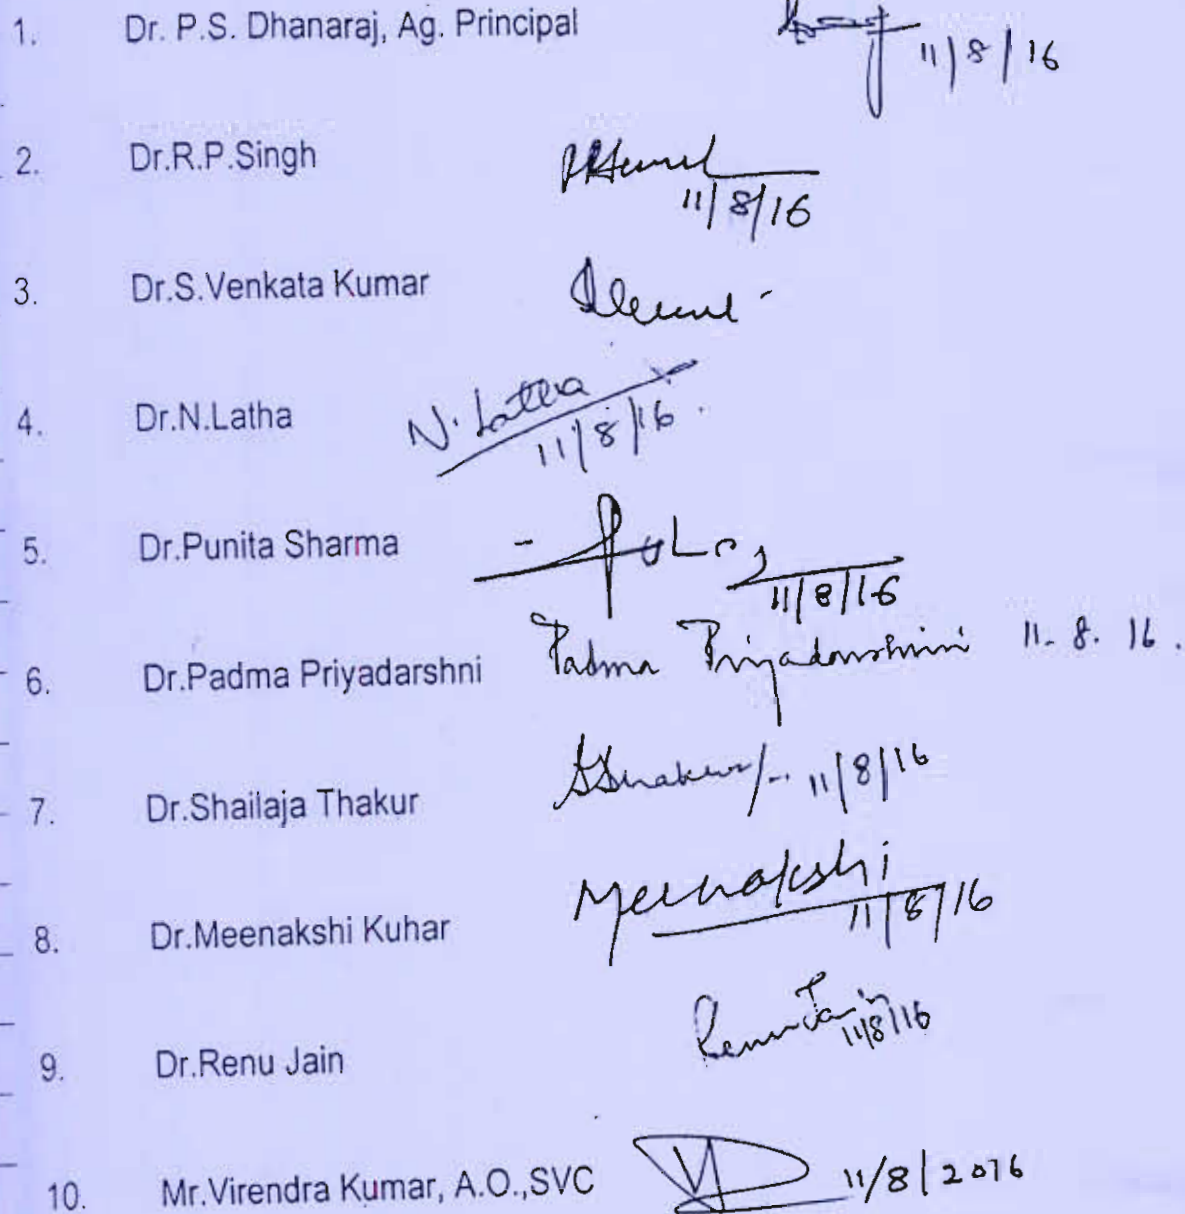 1. Dr. P.S. Dhanaraj, Ag. Principal 11/8/16
2. Dr.R.P.Singh 11/8/16
3. Dr.S.Venkata Kumar
4. Dr.N.Latha N. Latha 11/8/16.
5. Dr.Punita Sharma 11/8/16
6. Dr.Padma Priyadarshni Padma Priyadarshini 11. 8. 16.
7. Dr.Shailaja Thakur 11/8/16
8. Dr.Meenakshi Kuhar Meenakshi 11/8/16
9. Dr.Renu Jain Renu Jain 11/8/16
10. Mr.Virendra Kumar, A.O.,SVC 11/8/2016